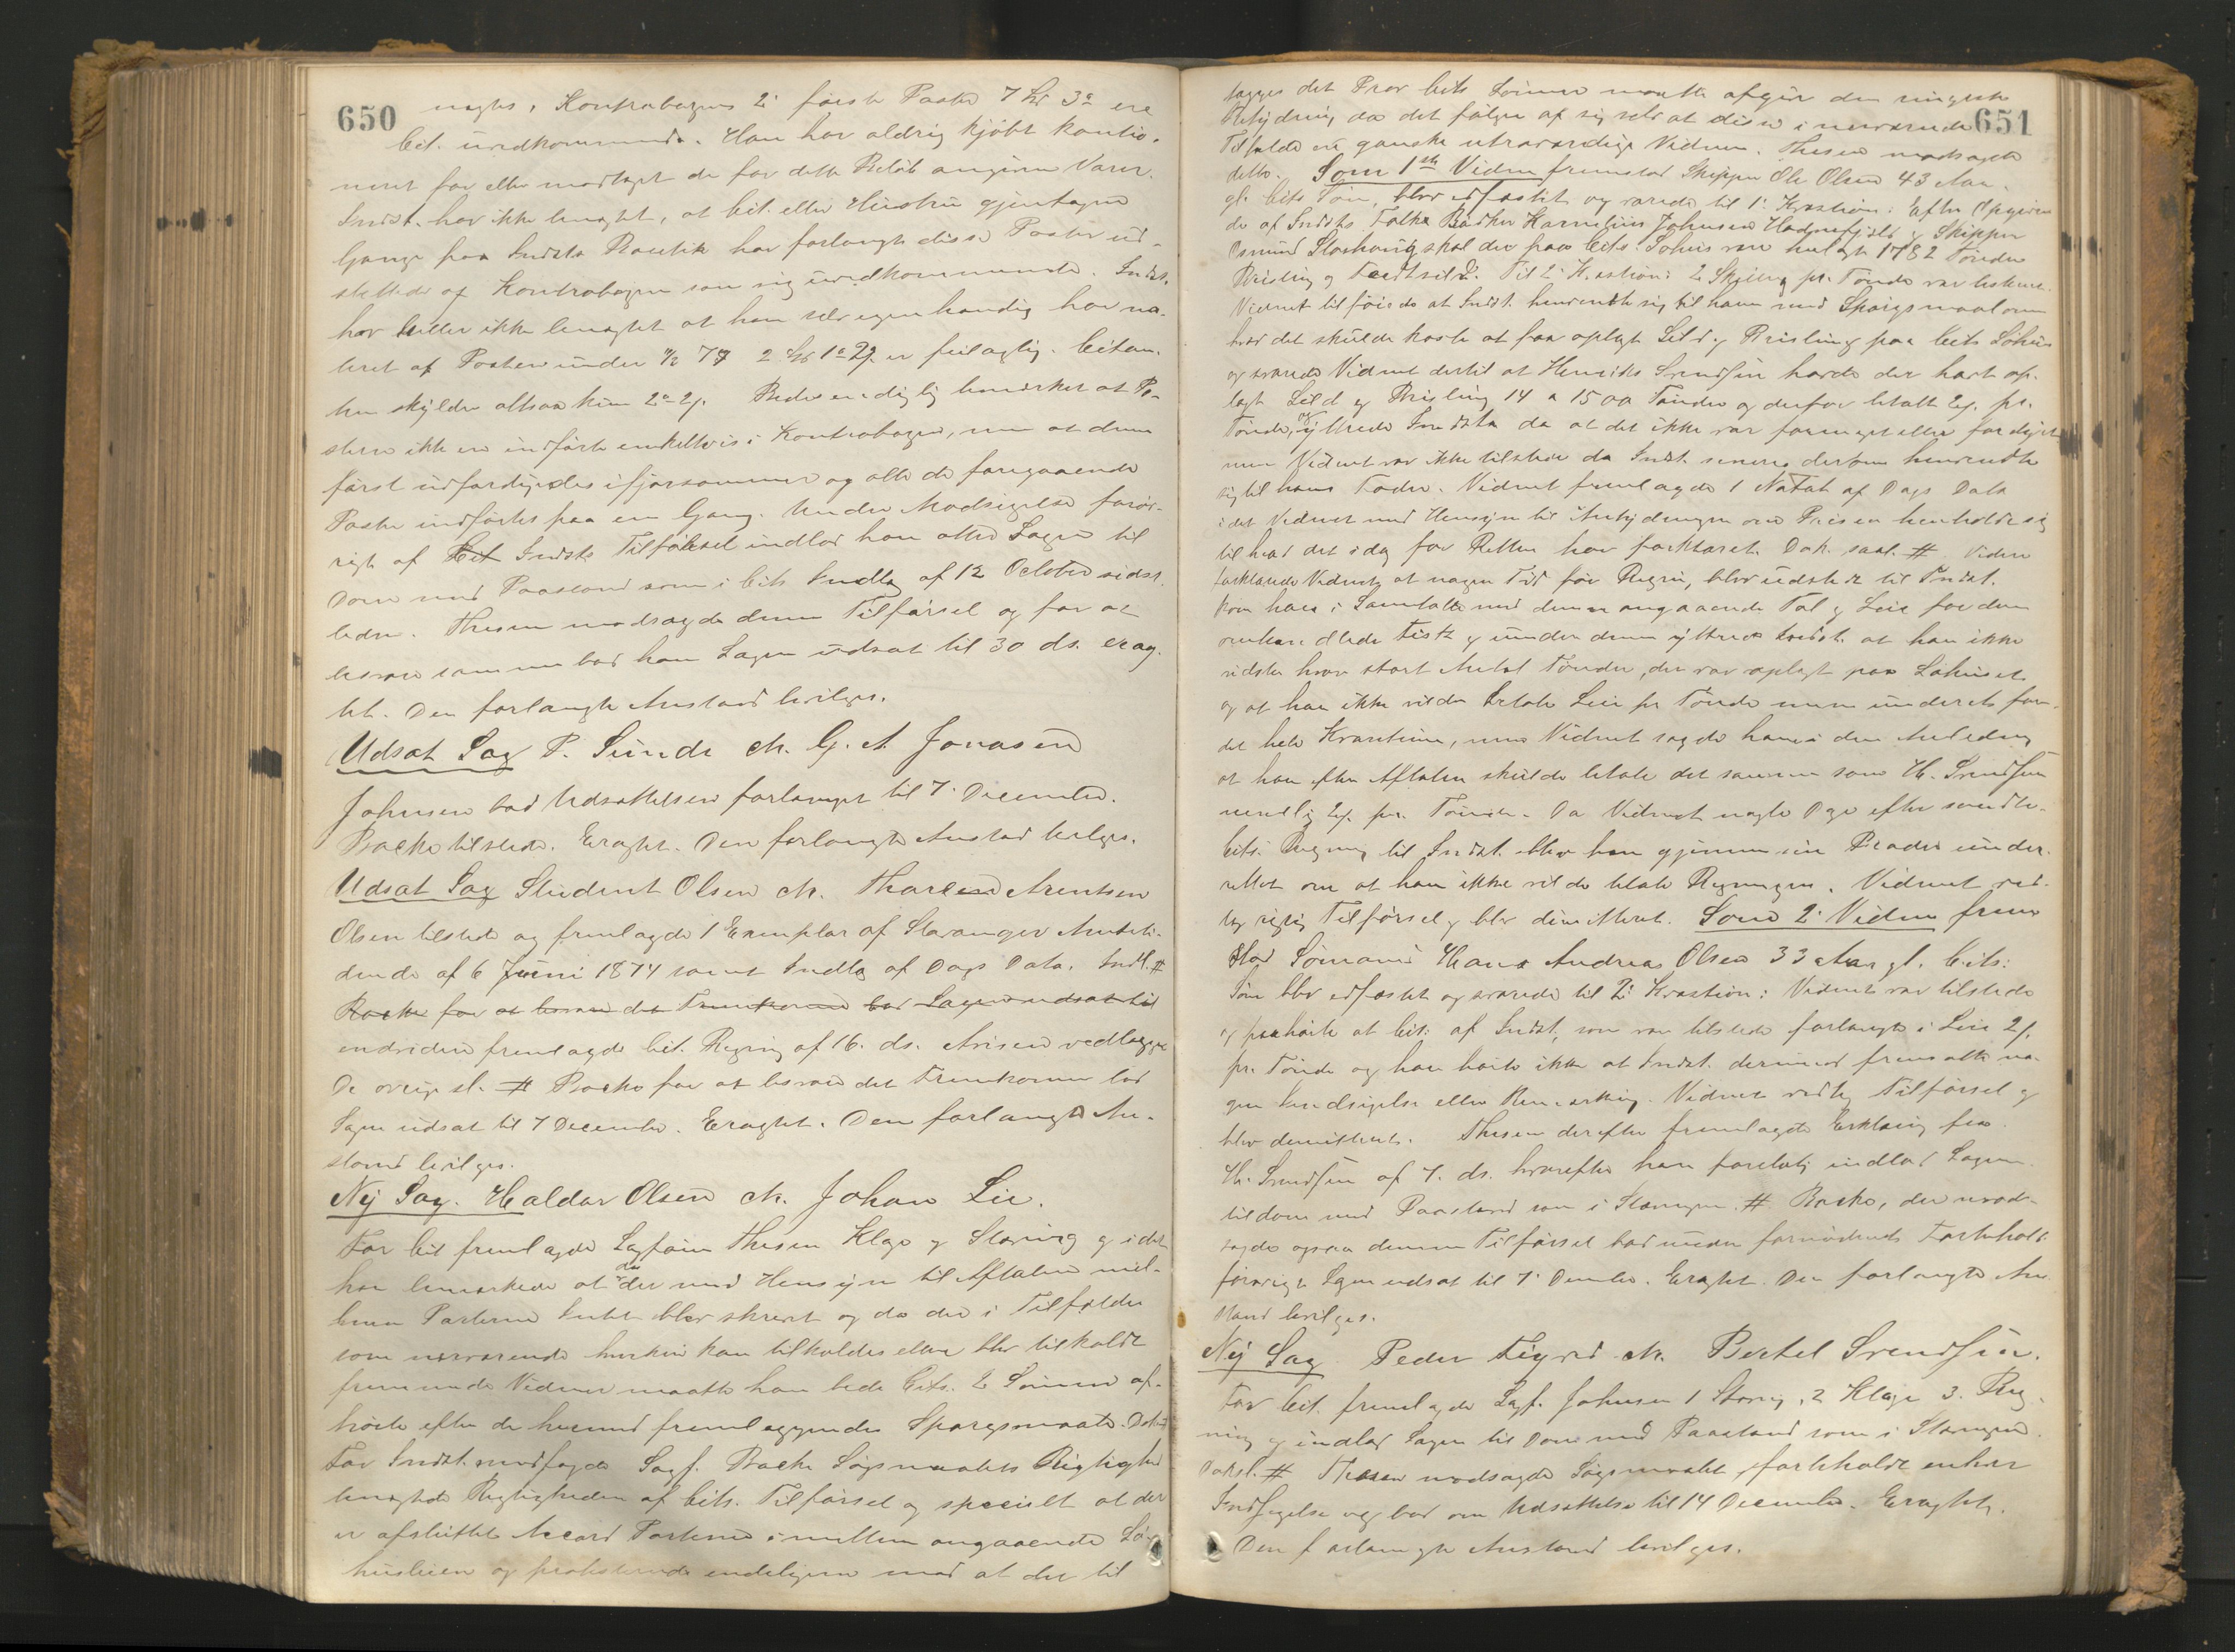 650
negtes. Kontrabogens 2 første Poster 7 Sp 3 ere
Cit. uvedkommende. Han har aldrig kjøbt kontio-
neret for eller modtaget de for dette Beløb angivne Varer.
Indst. har ikke benegtet, at Cit. eller Hustru gjentagne
Gange paa Indsts Boutik har forlangt disse Poster ud-
slettede af Kontrabogen som sig uvedkommende. Indst.
har heller ikke benegtet at han selv egenhændig har no-
teret at Posten under 2 Sp 1 29 er feilagtig. Citan-
ten skylder altsaa kun 2 29. Bedes endelig bemærket at Po-
sterne ikke ere indførte enkeltvis i Kontrabogen, men at denne
først udfærdigedes ifjorsommer og alle de foregaaende
Poster indførtes paa en Gang. Under Modsigelse forøv-
rigt af Cit Indsts Tilførsel indlod han atter Sagen til
Dom med Paastand som i Cits Indlæg af 12 October sidst-
leden. Thesen modsagde denne Tilførsel og for at
besvare samme bad han Sagen udsat til 30 ds. erag-
tet. Den forlangte Anstand bevilges.
Udsat Sag P. Sunde ctr. G. A. Jonasen
Johnsen bad Udsættelsen forlænget til 7 December.
Backe tilstede. Eragtet. Den forlangte Anstad bevilges.
Udsat Sag Student Olsen ctr. Thar Arentsen
Olsen tilstede og fremlagde 1 Exemplar af Stavanger Amtsti-
dende af 6 Juni 1874 samt Indlæg af Dags Dato. Indl. #
Backe for at besvare det Fremkomne bad Sagen udsat til
endvidere fremlagde Cit. Regning af 16. ds. Avisen vedlægges
De øvrige sl. # Backe for at besvare det Fremkomne bad
Sagen udsat til 7 December. Eragtet. Den forlangte An-
stand bevilges.
Ny Sag. Haldor Olsen ctr. Johan Lie.
For Cit fremlagde Sagfører Thesen Klage og Stævning og idet
han bemærkede at da der med Hensyn til Aftalen mel-
lem Parterne Intet blev skrevet og da der i Tilfælde
som nærværende hverken kan tilkaldes eller blev tilkaldt
fremmede Vidner maatte han bede Cits. 2 Sønner af-
hørte efter de hermed fremlæggende Spørgsmaale. Dok
For Indst. mødte Sagf. Backe Søgsmaalets Rigtighed
benegtede Rigtigheden af Cits. Tilførsel og specielt at der
er afsluttet Accord Parterne imellem angaaende Sø-
husleien og protesterede endeligen mod at der til
651
lægges det Prov Cits Sønner maatte afgive den ringeste
Betydning da det følger af sig selv at disse i nærværende
Tilfælde ere ganske utroværdige Vidner. Thesen modsagde
dette. Som 1ste Vidne fremstod Skipper Ole Olsen 43 Aar
gl. Cits Søn, blev edfæstet og svarede til 1: Kvæstion: Efter Opgiven-
de af Indsts Folk Bødker Karnelius Johnsen Hadgnefjeld og Skipper
Osmund Stashavig skal der paa Cits Søhus være henlagt 1782 Tønder
Brisling og Fedtsild. Til 2: Kvæstion: 2 Skilling pr. Tønde var betinget.
Vidnet tilføiede at Indst. henvendte sig til ham med Spørgsmaal om
hvad det skulde koste at faa oplagt Sild og Brisling paa Cits Søhus
og svarede Vidnet dertil at Henriks Svendsen havde der havt op-
lagt Sild og Brisling 14 a 1500 Tønder og derfor betalt 2 sk. pr.
Tønde, og yttrede Indsta da at det ikke var formeget eller for dyrt
men Vidnet var ikke tilstede da Indst. senere derom henvendte
sig til hans Fader. Vidnet fremlagde 1 Notat af Dags Dato
idet Vidnet med Hensyn til Antydningen om Prisen henholdt sig
til hvad det idag for Retten har forklaret. Dok. saal. # Videre
forklarede Vidnet at nogen Tid før Regni, blev udstedt til Indst.
kom han i Samtale med denne angaaende Tal og Leie for den
omhandlede Fisk og under denne yttrede Indst. at han ikke
vidste hvor stort Antal Tønder, der var oplagt paa Søhuset
og at han ikke vilde betale Leie pr Tønde men underets for
det hele Kvantum, men Vidnet sagde ham i den Anledning
at han efter Aftalen skulde betale det samme som H. Svendsen
nemlig 2 sk. pr. Tønde. Da Vidnet nogle Dage efter sendte
Cits. Regning til Indst. blev han gjennem sin Broder under-
rettet om at han ikke vilde betale Regningen. Vidnet ved-
tog rigtig Tilførsel og blev dimitteret. Som 2: Vidne frem
stod Sømand Hans Andreas Olsen 33 Aar gl. Cits:
Søn blev edfæstet og svarede til 2: Kvæstion: Vidnet var tilstede
og paahørte at Cit: af Indst, som var tilstede forlangte i Leie 2 sk.
pr. Tønde og han hørte ikke at Indst. derimod fremsatte no-
gen Indsigelse eller Bemærkning. Vidnet vedtog Tilførsel og
blev demitteret. Thesen derefter fremlagde Erklæring fra
H. Svendsen af 7. ds. hvorefter han foreløbig indlod Sagen
til Dom med Paastand som i Stævningen # Backe, der mod-
sagde ogsaa denne Tilførsel bad under fornødent Forbehold
forøvrigt Sagen udsat til 7: December. Eragtet. Den forlangte An
stand bevilges.
Ny Sag. Peder Sigvd ctr. Bertel Svendsen.
For Cit. fremlagde Sagf. Johnsen 1 Stævning, 2 Klage 3. Reg-
ning og indlod Sagen til Dom med Paastand som i Stævningen.
Doksl. # Thesen modsagde Søgsmaalet, forbeholdt enhver
Indsigelse og bad om Udsættelse til 14 December. Eragtet.
Den forlangte Anstand bevilges.